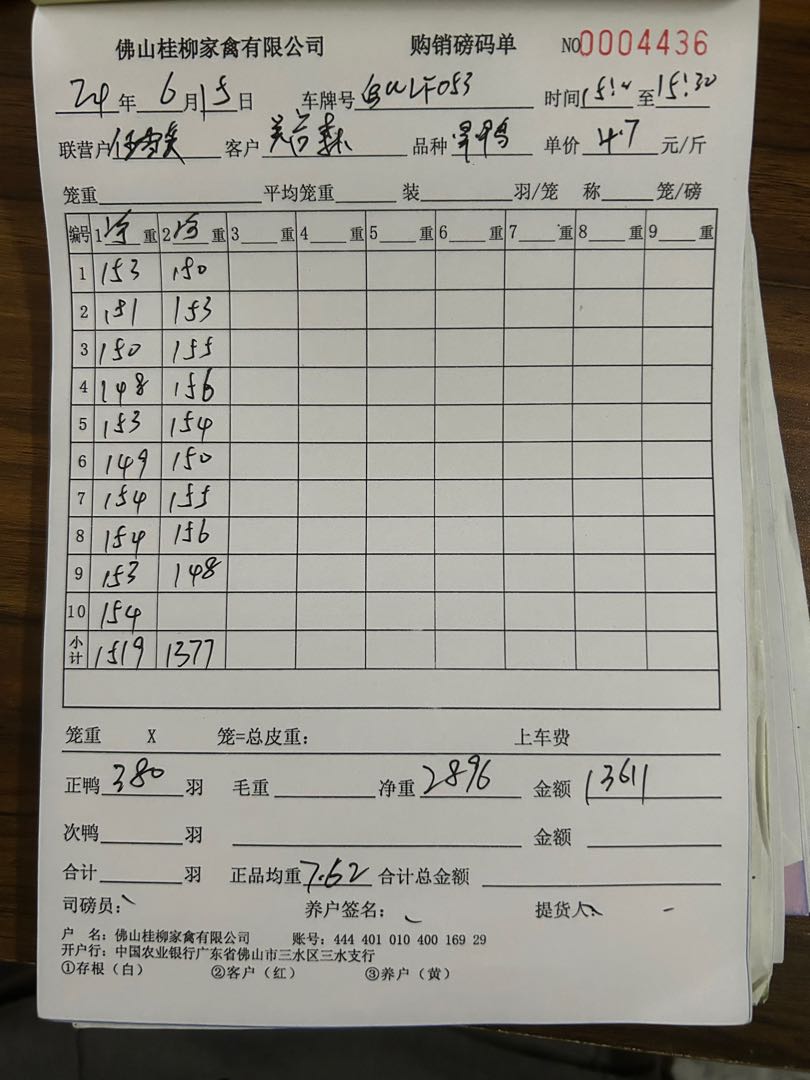 佛山桂柳家禽有限公司 购销磅码单 NO0004436
24年 6月15日 车牌号 时间 至15:30
联营户 客户 品种 单价 4.7 元/斤
笼重 平均笼重 装 羽/笼 称 笼/磅
编号 1 净 重 2 净 重 3 重 4 重 5 重 6 重 7 重 8 重 9 重
1 153 150
2 151 153
3 150 155
4 148 156
5 153 154
6 149 150
7 154 155
8 154 156
9 153 148
10 154
小计 1519 1377
笼重 X 笼=总皮重: 上车费
正鸭 380 羽 毛重 净重 2896 金额 13611
次鸭 羽 金额
合计 羽 正品均重 7.62 合计总金额
司磅员: 养户签名: 提货人:
户 名: 佛山桂柳家禽有限公司 账号: 444 401 010 400 169 29
开户行: 中国农业银行广东省佛山市三水区三水支行
①存根（白） ②客户（红） ③养户（黄）